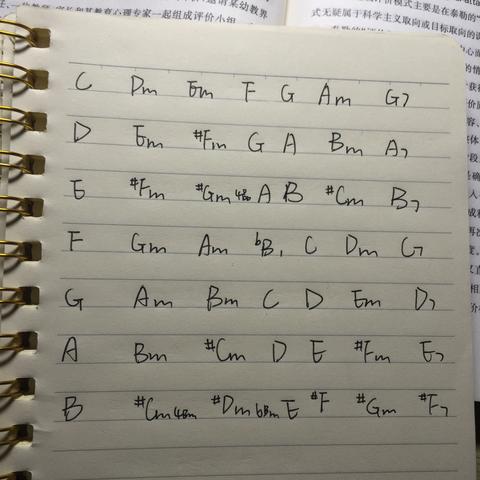 一起组成评价小组
价模式主要是在泰勒的"
式无疑属于科学主义取向或目标取向的
C Dm Em F G Am G7
D Em #Fm G A Bm A7
E #Fm #Gm 4Bm A B #Cm B7
F Gm Am bB, C Dm C7
G Am Bm C D Em D7
A Bm #Cm D E #Fm E7
B #Cm 4Bm #Dm 6Bm E #F #Gm #F7